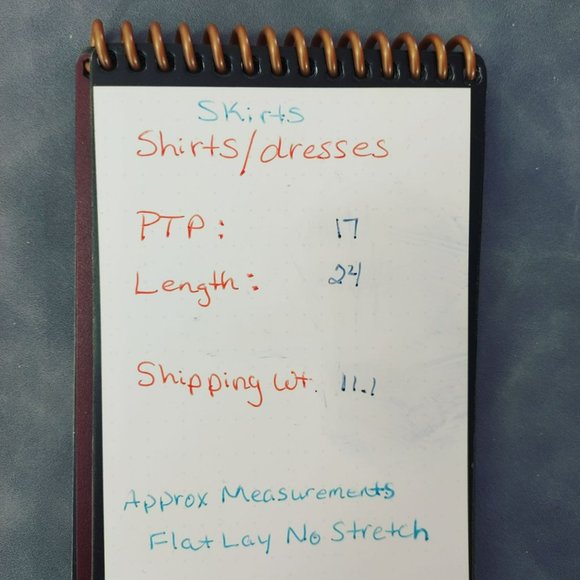 Skirts
Shirts/dresses
PTP: 17
Length: 24
Shipping Wt. 11.1
Approx Measurements
Flat Lay No Stretch